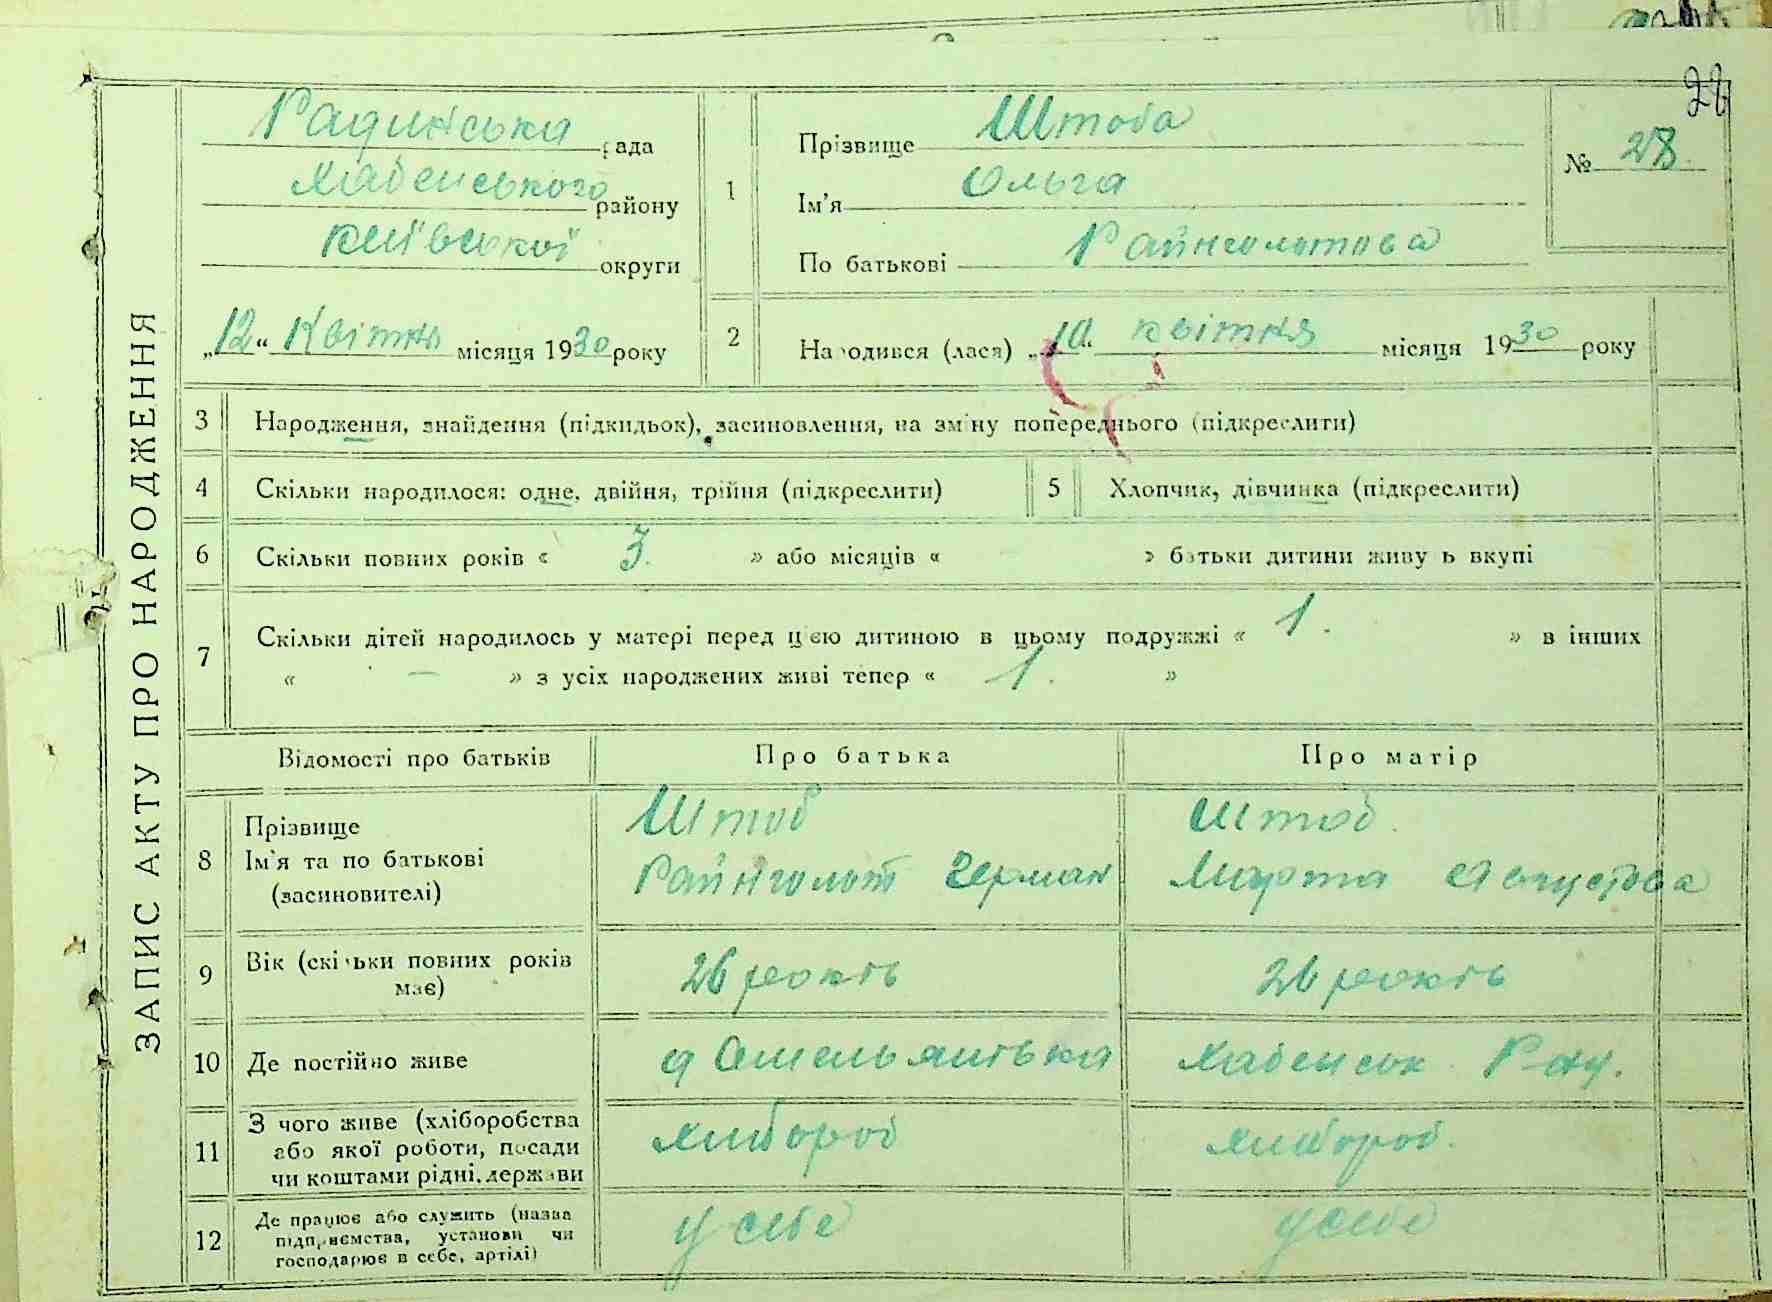 28
ЗАПИС АКТУ ПРО НАРОДЖЕННЯ
Радинська рада
Хабенського району
Київської округи
„12“ Квітня місяця 1930 року
1
Прізвище Штоба
Ім'я Ольга
По батькові Райнгольтова
№ 28
2
Народився (лася) „10“ квітня місяця 1930 року
3 Народження, знайдення (підкидьок), засиновлення, на зміну попереднього (підкреслити)
4 Скільки народилося: одне, двійня, трійня (підкреслити)
5 Хлопчик, дівчинка (підкреслити)
6 Скільки повних років « 3. » або місяців « » батьки дитини живуть вкупі
7 Скільки дітей народилось у матері перед цією дитиною в цьому подружжі « 1. » в інших
« — » з усіх народжених живі тепер « 1. »
Відомості про батьків Про батька Про матір
8 Прізвище Штоб Штоб.
Ім'я та по батькові Райнгольт Герман Марта Августова
(засиновителі)
9 Вік (скільки повних років має) 26 рокіь 26 рокіь
10 Де постійно живе Хабенськ Рай.
11 З чого живе (хліборобства
або якої роботи, посади
чи коштами рідні, держави
хлибороб хлибороб.
12 Де працює або служить (назва
підприємства, установи чи
господарює в себе, артілі)
у себе у себе